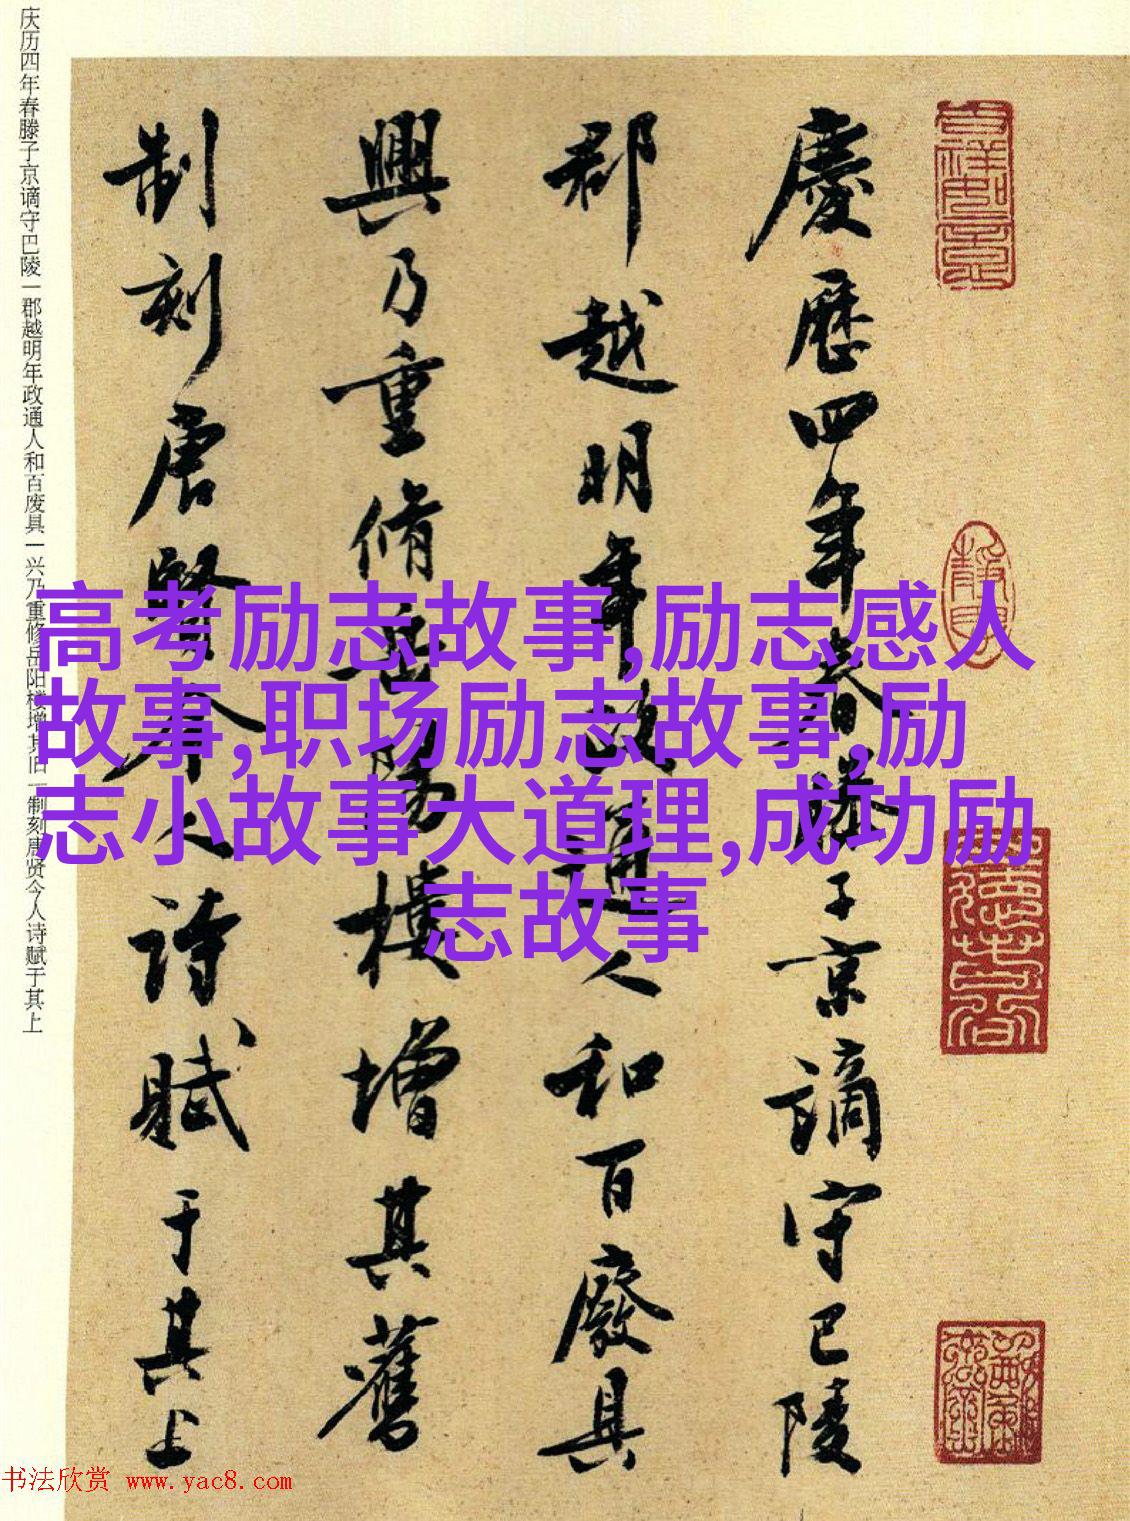 慶歷四年春滕子京謫守巴陵
郡越明年政通人和百廢具
興乃重脩岳陽樓增其舊
制刻唐賢今人詩賦于其上
庆历四年春滕子京谪守巴陵一郡越明年政通人和百废具一兴乃重修岳阳楼增其旧一制刻唐贤今人诗赋于其上
高考励志故事,励志感人
故事,职场励志故事,励
志小故事大道理,成功励
志故事
书法欣赏 www.yac8.com